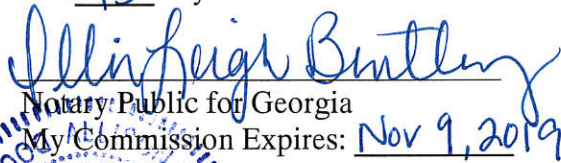 Leigh Bentley
Notary Public for Georgia
My Commission Expires: Nov 9, 2019